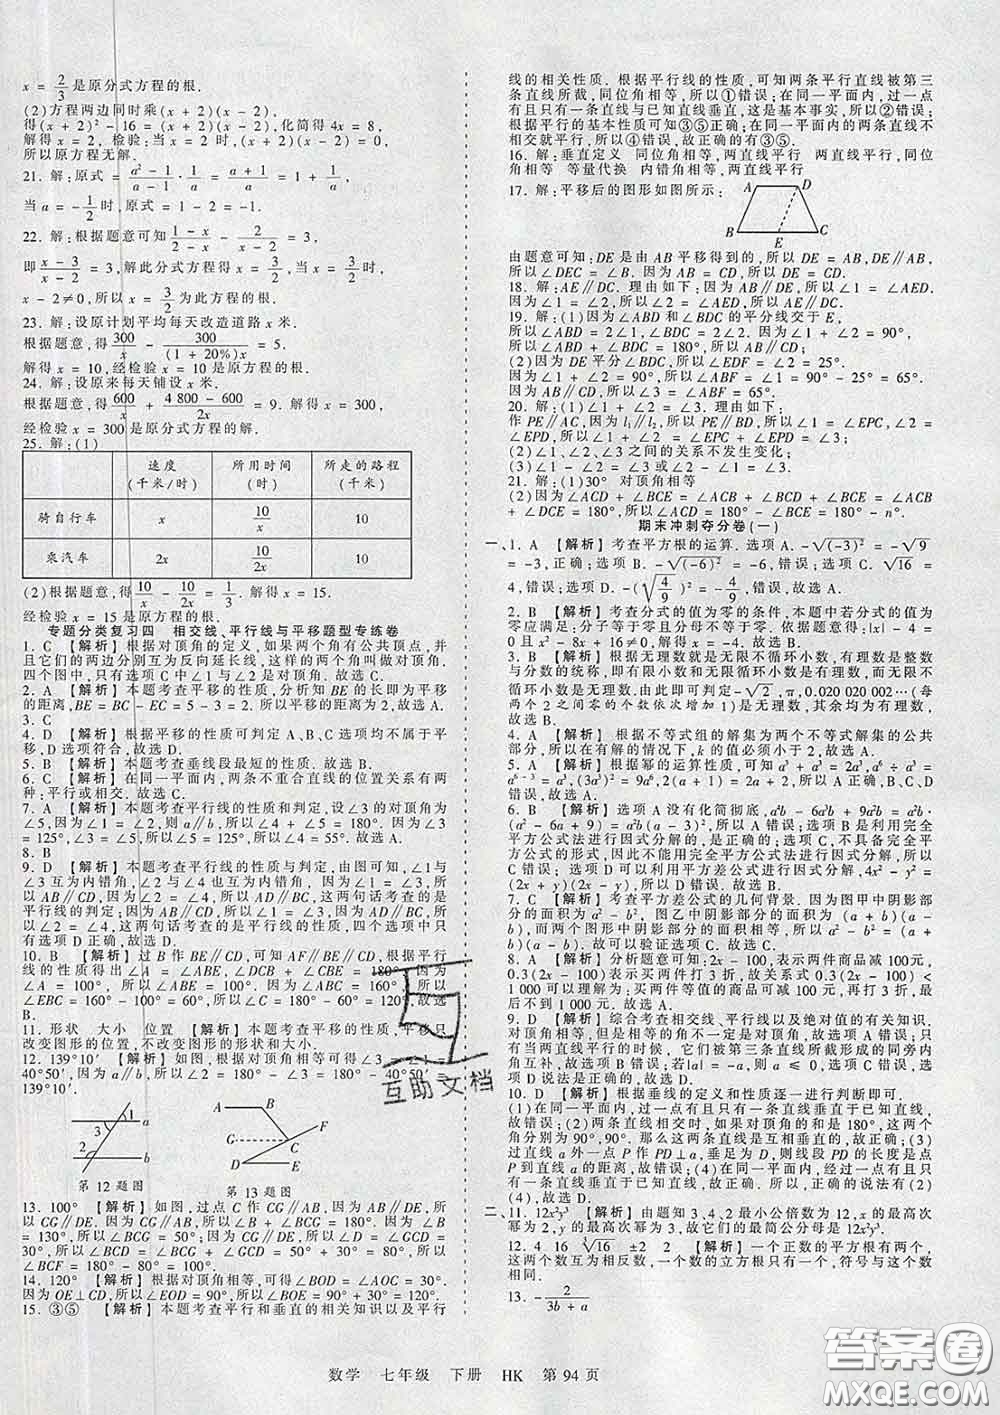 x = 2/3 是原分式方程的根.
(2)方程两边同时乘(x + 2)(x - 2),
得(x + 2)² - 16 = (x + 2)(x - 2),化简得 4x = 8,
解得 x = 2, 检验:当 x = 2 时,(x + 2)(x - 2) = 0,
所以原方程无解.
21. 解:原式 = (a² - 1)/(a - 1) · 1/a = (a + 1)/a = 1 + 1/a,
当 a = -1/2 时,原式 = 1 - 2 = -1.
22. 解:根据题意可知 (1 - x)/(2 - x) - 2/(x - 2) = 3,
即 (x - 3)/(x - 2) = 3,解此分式方程得 x = 3/2, 当 x = 3/2 时,
x - 2≠0,所以 x = 3/2 为此方程的根.
23. 解:设原计划平均每天改造道路 x 米.
根据题意,得 300/x - 300/((1 + 20%)x) = 5.
解得 x = 10,经检验 x = 10 是原方程的根.
24. 解:设原来每天铺设 x 米.
根据题意,得 600/x + (4 800 - 600)/2x = 9. 解得 x = 300,
经检验 x = 300 是原分式方程的解.
25. 解:(1)
速度(千米/时) 所用时间(时) 所走的路程(千米)
骑自行车 x 10/x 10
乘汽车 2x 10/2x 10
(2)根据题意,得 10/x - 10/2x = 20/60. 解得 x = 15.
经检验 x = 15 是原方程的根.
专题分类复习四 相交线、平行线与平移题型专练卷
1. C 【解析】根据对顶角的定义,如果两个角有公共顶点,并
且它们的两边分别互为反向延长线,这样的两个角叫做对顶角.
四个图中,只有选项 C 中∠1 与∠2 是对顶角. 故选 C.
2. A 【解析】本题考查平移的性质,分析知 BE 的长即为平移
的距离,BE = BC - EC = 5 - 3 = 2. 所以平移的距离为 2,故选 A.
3. C
4. D 【解析】根据平移的性质可判定 A、C、B 选项均不属于平
移,D 选项符合,故选 D.
5. B 【解析】本题考查垂线段最短的性质. 故选 B.
6. C 【解析】在同一平面内,两条不重合直线的位置关系有两
种:平行或相交. 故选 C.
7. A 【解析】本题考查平行线的性质和判定,设∠3 的对顶角为
∠5,因为∠1 = ∠2,则 a∥b,所以∠4 + ∠5 = 180°. 因为∠3 =
∠5 = 125°,所以∠4 = 180° - ∠5 = 180° - 125° = 55°. 故选 A.
8. B
9. D 【解析】本题考查平行线的性质与判定,由图可知,∠1与
∠3 互为内错角,∠2 与∠3 互为内错角,这两句话考查的是
平行线的判定;因为∠1 = ∠2,所以 a∥b;因为 a∥b,所以
∠2 = ∠3,这两句话考查的是平行线的性质. 四个选项中只
有选项 D 正确,故选 D.
10. B 【解析】过 B 作 BE∥CD,可知 AF∥BE∥CD,根据平行
线的性质得出∠A = ∠ABE,∠BCD + ∠CBE = 180°. 因为
∠A = 100°,所以∠ABE = 100°. 因为∠ABC = 160°,所以
∠EBC = 160° - 100° = 60°,所以∠C = 180° - 60° = 120°,故选
B.
11. 形状 大小 位置 【解析】本题考查平移的性质,平移只
改变图形的位置,不改变图形的形状和大小.
12. 139°10′ 【解析】如图,根据对顶角相等可得∠3 = ∠1 =
40°50′. 因为 a∥b,所以∠2 = 180° - ∠3 = 180° - 40°50′ =
139°10′.
1 3 2 a b
A B G C F D E
第 12 题图 第 13 题图
13. 100° 【解析】如图,过点 C 作 CG∥AB,因为 AB∥DE,所
以 CG∥DE,所以∠B + ∠BCG = 180°. 因为∠B = 150°,所以
∠BCG = 30°. 因为 CG∥DE,所以∠D = ∠GCD. 因为∠D =
30°,所以∠DCG = 30°,所以∠BCD = 30° + 50° = 80°,所以
∠BCF = 180° - 80° = 100°.
14. 120° 【解析】根据对顶角相等,可得∠BOD = ∠AOC = 30°.
因为 OE⊥CD,所以∠DOE = 90°,所以∠BOE = 90° + 30° = 120°.
15. ③⑤ 【解析】本题考查平行和垂直的相关知识以及平行
线的相关性质. 根据平行线的性质,可知两条平行直线被第三
条直线所截,同位角相等,所以①错误;在同一平面内,过一点
有且只有一条直线与已知直线垂直,这是基本事实,所以②错误;
根据平行的基本性质可知③⑤正确;在同一平面内的两条直线不
相交就平行,所以④错误,故正确的有③⑤.
16. 解:垂直定义 同位角相等,两直线平行 两直线平行,同位
角相等 等量代换 内错角相等,两直线平行
17. 解:平移后的图形如图所示:
A D B E C
由题意可知:DE 是由 AB 平移得到的,所以 DE = AB,DE∥AB,
所以∠DEC = ∠B. 因为 AB = DC,所以 DE = DC,所以∠DEC = ∠C,
所以∠B = ∠C.
18. 解:AE∥DC. 理由如下:因为 AB∥DE,所以∠1 = ∠AED.
因为∠1 = ∠2,所以∠AED = ∠2,所以 AE∥DC.
19. 解:(1)因为∠ABD 和∠BDC 的平分线交于 E,
所以∠ABD = 2∠1,∠BDC = 2∠2. 因为∠1 + ∠2 = 90°,
所以∠ABD + ∠BDC = 180°,所以 AB∥CD.
(2)因为 DE 平分∠BDC,所以∠EDF = ∠2 = 25°.
因为∠1 + ∠2 = 90°,所以∠ABF = ∠1 = 90° - 25° = 65°.
因为 AB∥CD,所以∠3 = ∠ABF = 65°.
20. 解:(1)∠1 + ∠2 = ∠3. 理由如下:
作 PE∥AC,因为 l₁∥l₂,所以 PE∥BD,所以∠1 = ∠EPC,∠2 =
∠EPD,所以∠1 + ∠2 = ∠EPC + ∠EPD = ∠3;
(2)∠1、∠2、∠3 之间的关系不发生变化;
21. 解:(1)30° 对顶角相等
(2)因为∠ACD + ∠BCE = ∠ACB + ∠BCD + ∠BCE = ∠ACB
+ ∠DCE = 180°,所以∠ACD = 180° - ∠BCE = 180° - n°.
期末冲刺夺分卷(一)
一、1. A 【解析】考查平方根的运算. 选项 A. -√(-3)² = -√9
= -3,正确;选项 B. -√(-6)² = -6,错误;选项 C. √16 =
4,错误;选项 D. -(√4/9)² = -4/9,错误. 故选 A.
2. B 【解析】考查分式的值为零的条件. 本题中若分式的值为
零应满足:分子为零,分母不为零. 所以若分式为零,则|x| - 4 =
0 且 x² - 8x + 16≠0,解得 x = -4. 故选 B.
3. B 【解析】根据无理数就是无限不循环小数,有理数是整数
与分数的统称,即有限小数和无限循环小数是有理数,而无限不
循环小数是无理数. 由此即可判定 -√2,π,0.020 020 002…(每
两个 2 之间零的个数依次增加 1)是无理数,其余均为有理数,
故选 B.
4. A 【解析】根据不等式组的解集为两个不等式解集的公共
部分,所以在有解的情况下,k 的值必须小于 2,故选 A.
5. A 【解析】根据幂的运算性质,可知 a³ + a³ = 2a³,a⁶ ÷ a³ =
a⁶⁻³ = a³,(3a³)² = 9a⁶,2(a + 1) = 2a + 2,所以 B、C、D
错误. 故选 A.
6. B 【解析】选项 A 没有化简彻底,a²b - 6a²b + 9a²b = a²b ·
(a² - 6a + 9) = a²b(a - 3)²,所以 A 错误;选项 B 是利用完全
平方公式法进行因式分解,所以 B 正确;选项 C,不具备完全平
方公式的形式,因此不能用完全平方公式法进行因式分解,所以
C 错误; 选项 D, 利用平方差公式法进行因式分解,4x² - y² =
(2x + y)(2x - y),所以 D 错误. 故选 B.
7. C 【解析】考查平方差公式的几何背景. 因为图甲中阴影部
分的面积为 a² - b², 图乙中阴影部分的面积为 (a + b)(a - b),
而两个图形中阴影部分的面积相等,所以 a² - b² = (a + b) ·
(a - b). 故可以验证选项 C. 故选 C.
8. A 【解析】分析题意可知:2x - 100,表示两件商品减 100元,
0.3(2x - 100)表示买两件打 3 折,故关系式 0.3(2x - 100) <
1 000 可以理解为买两件减 100 元,再打 3 折,最后不到
1 000 元. 故选 A.
9. D 【解析】综合考查相交线、平行线以及绝对值的有关知识.
对顶角相等,但是相等的角不一定是对顶角,故选项 A 错误;
只有当两直线平行的时候, 它们被第三条直线所截形成的同旁内
角互补,故选项 B 错误;若|a| = -a,则 a ≤ 0,选项 C 错误;
选项 D 说法是正确的. 故选 D.
10. D 【解析】根据垂线的定义和性质逐一进行判断即可.
(1)在同一平面内,如果一条直线垂直于两条平行线中的一条,
那么也垂直于另一条,故正确;(2)如果对顶角的和是 180°,则
分别为 90°,90°. 那么这两条直线是互相垂直的,故正确;(3)
过直线 a 外一点 P 作 PD⊥a,垂足为 D,则线段 PD 的长度是点
P 到直线 a 的距离,故错误;(4)在同一平面内过一点有且只有
一条直线与已知直线垂直,如果不在同一平面内,可以做无数条,
故错误. 故选 D.
二、11. 12x²y³ 【解析】由题知 3,4,2 最小公倍数为 12,x 的最高次
幂为 2,y 的最高次幂为 3,故它们的最简公分母是 12x²y³.
12. 4 16 ∛16 ±2 2 【解析】一个正数的平方根有两个,
这两个数互为相反数,一个数的立方根只有一个,符号与这个数
相同.
13. -2/(3b + a)
互助文档
数学 七年级 下册 HK 第 94 页
答案圈
MXQE.COM